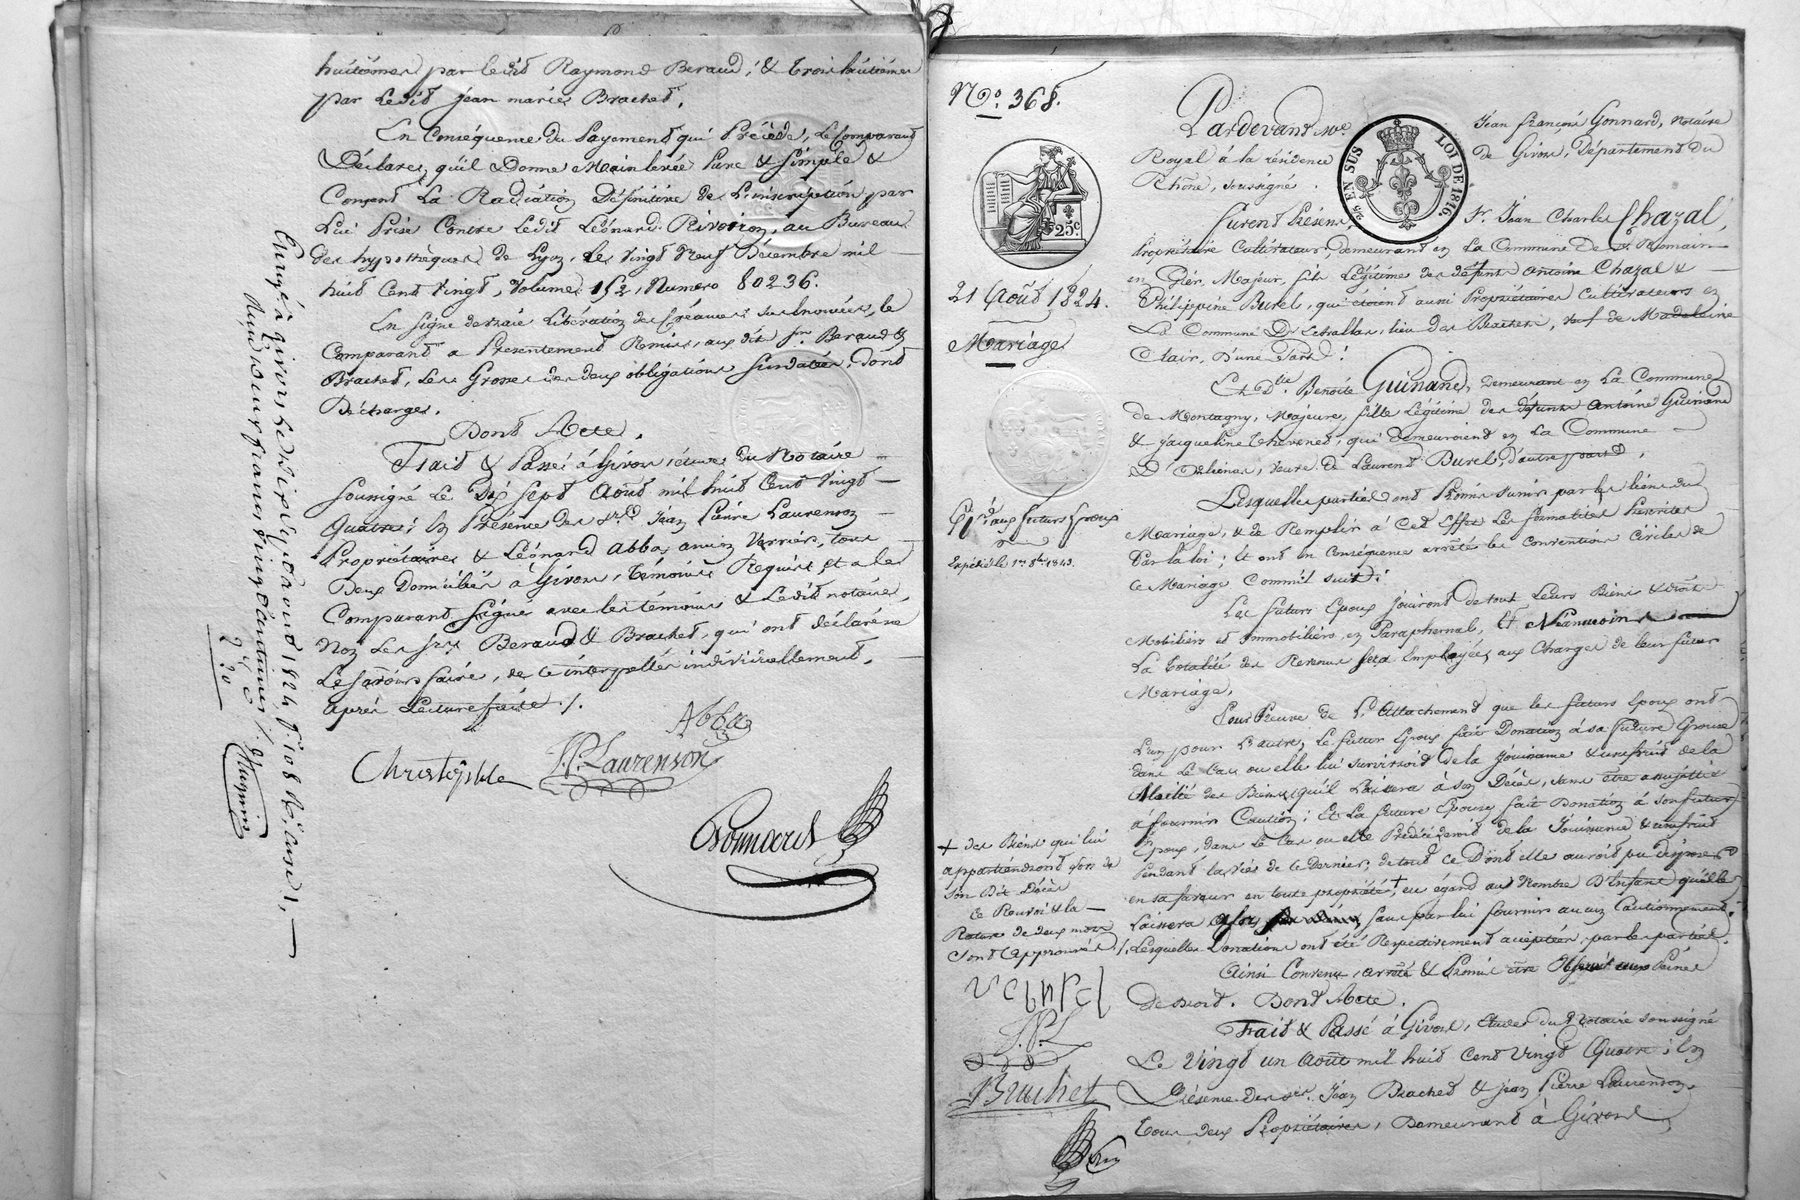 huitièmes par ledit Raymond Beraud, & trois huitièmes
par Ledit Jean marie Brachet.
En Conséquence du Payement qui Précède, Le Comparant
Déclare, qu'il Donne Main levée Pure & simple &
Consent La Radiation Définitive de L'inscription par
Lui Prise Contre Ledit Léonard Rivoiron, au Bureau
des hypothèques de Lyon, Les Vingt Neuf Décembre mil
huit Cent Vingt, Volume 152, Numero 80236.
En signe de vraie Libération des Créances susénoncées, le
Comparant a Présentement Remis, aux dits Srs. Beraud &
Brachet, Les Grosses des deux obligations susdatées, dont
Décharge.
Dont Acte.
Fait & Passé à Givors, étude du Notaire
soussigné Le Dix Sept Août mil huit Cent Vingt
Quatre; En Présence des Srs. Jean Pierre Laurenson
Propriétaire & Léonard Abba, ancien Verrier, tous
Deux Domiciliés à Givors, témoins Requis, et a le
Comparant Signé avec les témoins & Ledit notaire,
Non Les Srs. Beraud & Brachet, qui ont déclaré ne
Le Savoir faire, de ce interpellés individuellement,
après Lecture faite ./.
Abba
Christophle J.P. Laurenson
Gonnard
Enregé. à givors Le dix huit aout 1824, fº 108 Rº Case 1,
Reçu deux francs vingt Centimes ./.
2 "
" 20
2. 20
No. 368.
25c.
21 Août 1824.
Mariage
Gr. aux futurs Epoux
Expédié le 1er 8bre 1843.
Pardevant Me. Jean françois Gonnard, Notaire
Royal à la résidence de Givors, Département du
Rhône, soussigné.
25 EN SUS LOI DE 1816.
Furent Présens, Sr. Jean Charles Chazal,
Propriétaire Cultivateur, demeurant en La Commune de St. Romain
en Gier, Majeur, fils Légitime des défunts Antoine Chazal &
Philippine Burel, qui étoient aussi Propriétaires Cultivateurs en
La Commune D'Echallas, lieu des Brosses, veuf de Madeleine
Clair, D'une Part;
Et Dlle. Benoite Guinand, demeurant en La Commune
de Montagny, Majeure, fille Légitime des défunts Antoine Guinand
& Jacqueline Thevenet, qui demeuroient en La Commune
D'Orliénas, Veuve de Laurent Burel, d'autre part.
Lesquelles parties ont Promis s'unir par les liens du
Mariage, & de Remplir à Cet Effet Les formalités Prescrites
Par la loi; Et ont en Conséquence arrêté les Conventions Civiles de
Ce Mariage Comme suit:
Les futurs Epoux Jouiront de tout Leurs Biens & droits
Mobiliers et immobiliers en Paraphernal, Et Néanmoins
La totalité des Revenus sera Employée, aux Charges de leur futur
Mariage.
Pour Preuve de L'Attachement que les futurs Epoux ont
L'un pour L'autre, Le futur Epoux fait Donation à sa future Epouse
dans Le Cas ou elle lui survivroit de la Jouissance & usufruit de la
Moitié des Biens qu'il Laissera à son Décès, sans être assujettie
a fournir Caution; Et La future Epouse fait Donation à son futur
Epoux, dans Le Cas ou elle Prédécéderoit de la Jouissance & usufruit
Pendant la Vie de ce dernier, de tout ce Dont elle auroit pu disposer
en sa faveur en toute propriété +, eu égard au Nombre D'Enfant qu'elle
Laissera alors, sans par lui fournir aucun Cautionnement.
Lesquelles Donations ont été Respectivement acceptées par les parties.
+ des Biens qui lui
appartiendront lors de
son Dit Décès
Ce Renvoi & la
Rature de deux mots
sont Approuvés ./.
Ainsi Convenu, arrêté & Promis être Observé aux Peines
De Droit. Dont Acte.
Fait & Passé à Givors, Etude du Notaire soussigné
Le Vingt un Août mil huit Cent Vingt Quatre; En
Présence des Srs. Jean Brachet & Jean Pierre Laurenson,
tous deux Propriétaires, Demeurant à Givors
J.P.L
Brachet